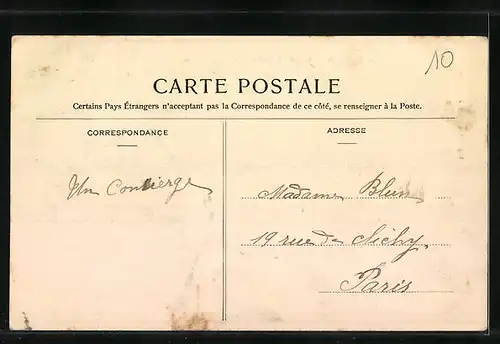 10
CARTE POSTALE
Certains Pays Étrangers n'acceptant pas la Correspondance de ce côté, se renseigner à la Poste.
CORRESPONDANCE
ADRESSE
Un Concierge
Madame Blum
19 rue de Vichy,
Paris